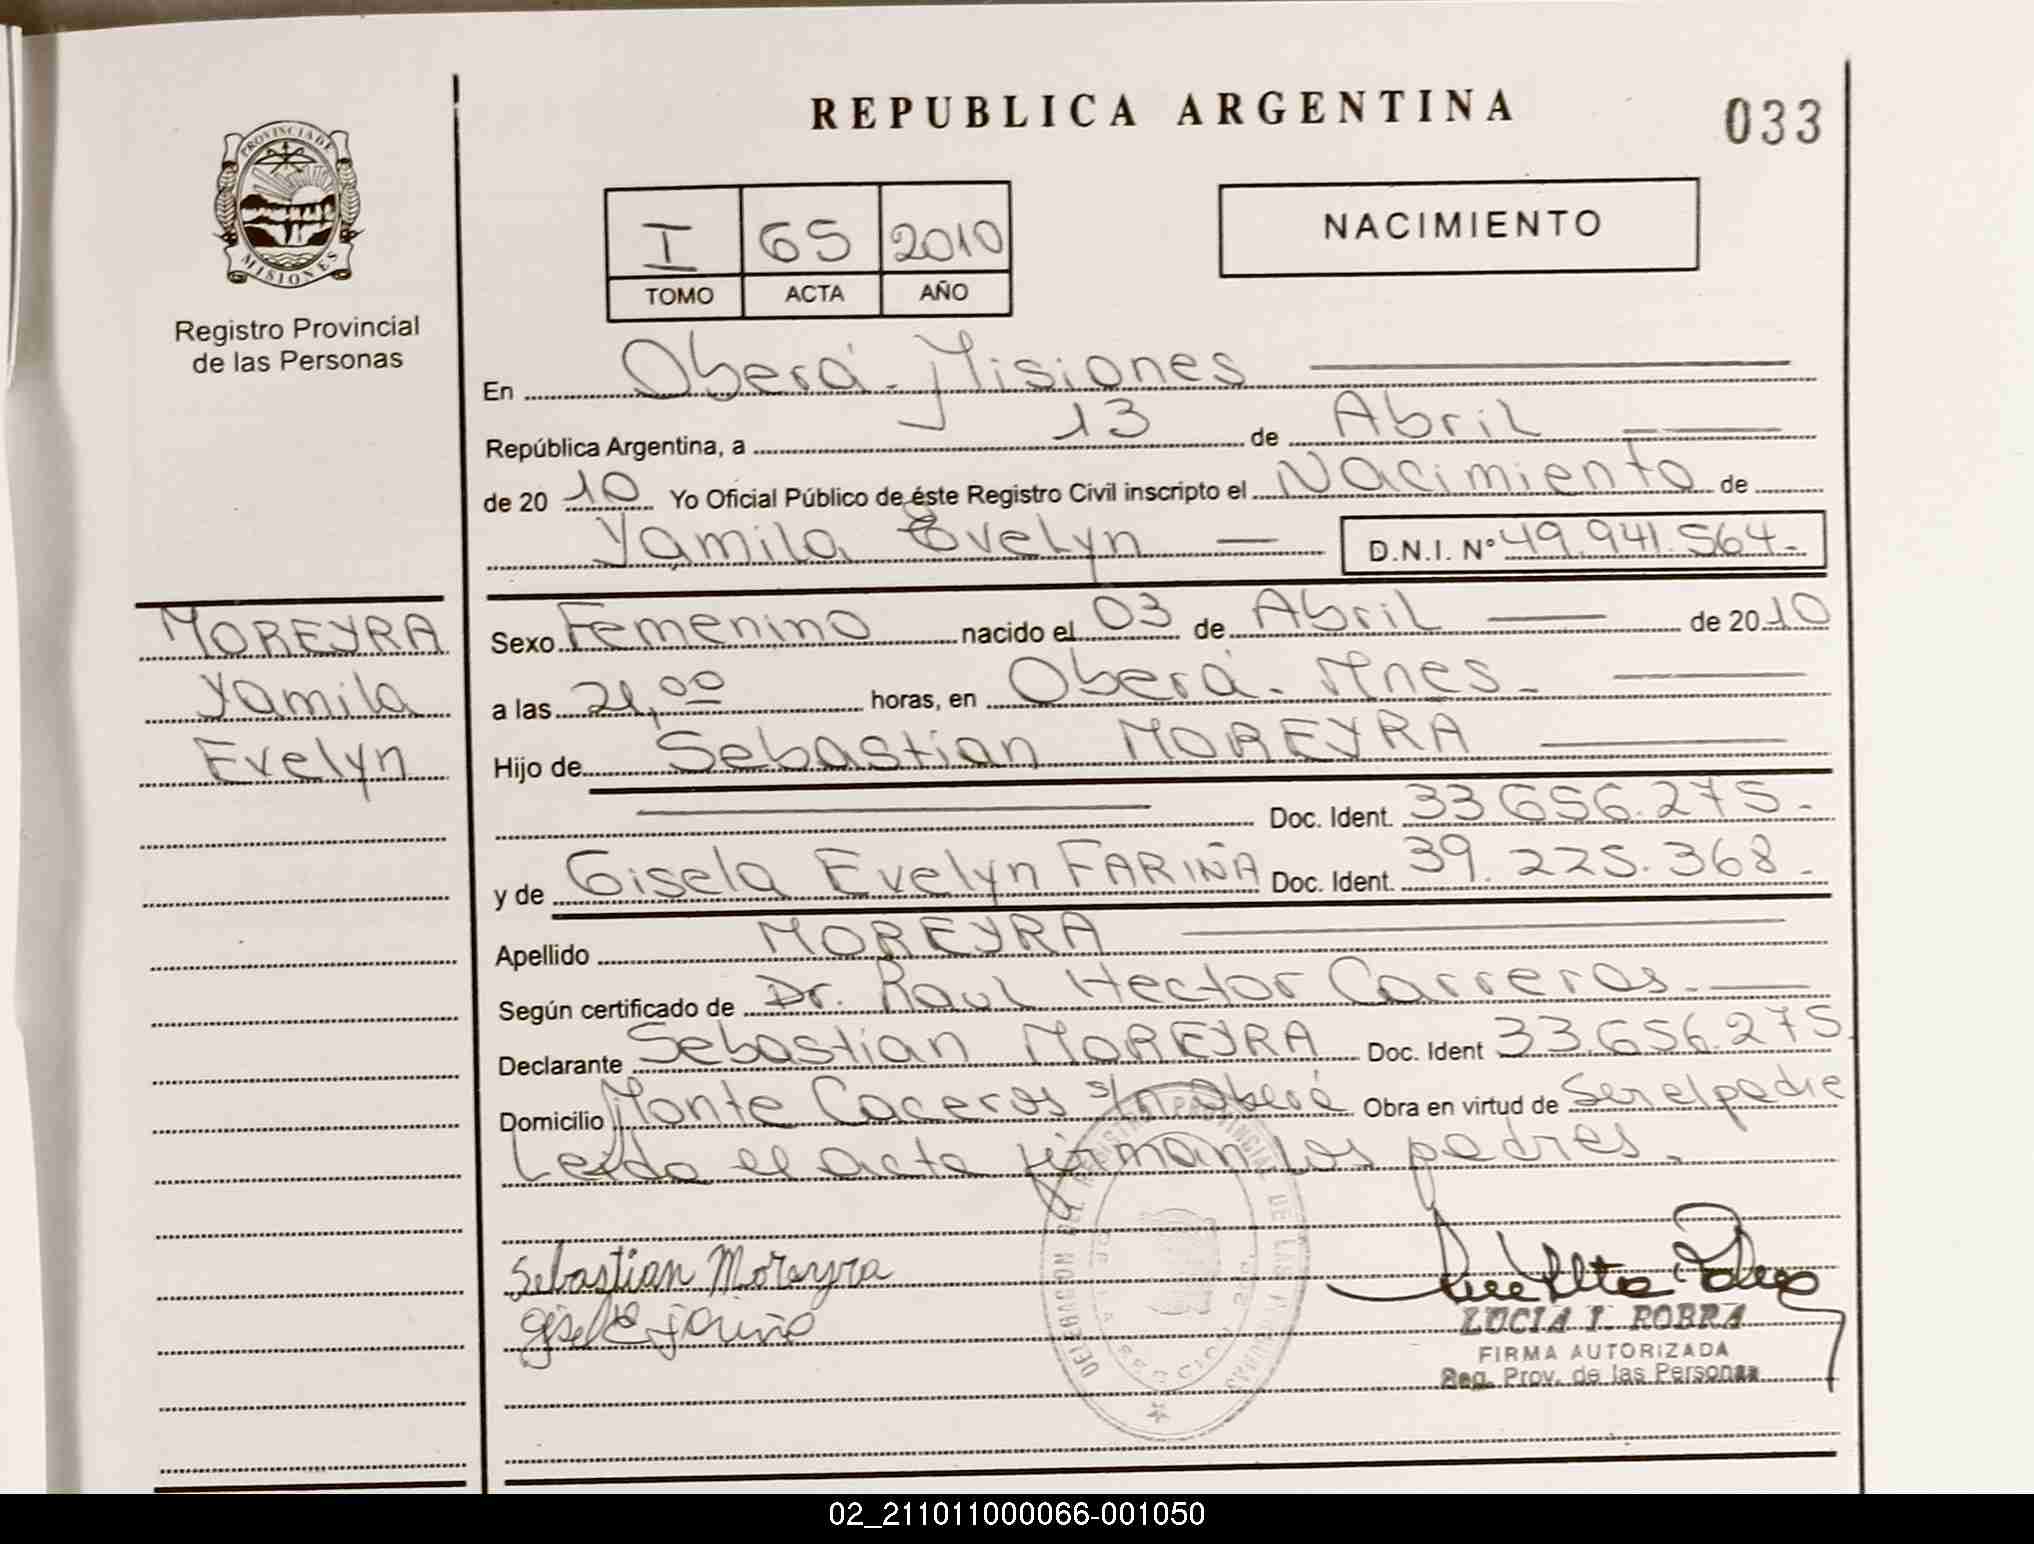 REPUBLICA ARGENTINA
033
PROVINCIA DE
MISIONES
Registro Provincial
de las Personas
I 65 2010
TOMO ACTA AÑO
NACIMIENTO
En Oberá - Misiones
República Argentina, a 13 de Abril
de 20 10 Yo Oficial Público de éste Registro Civil inscripto el Nacimiento de
Yamila Evelyn D.N.I. Nº 49.941.564.-
MOREYRA
Yamila
Evelyn
Sexo Femenino nacido el 03 de Abril de 20 10
a las 21,00 horas, en Oberá - Mnes -
Hijo de Sebastian MOREYRA
Doc. Ident. 33.656.275.-
y de Gisela Evelyn FARIÑA Doc. Ident. 39.225.368.-
Apellido MOREYRA
Según certificado de Dr. Raul Hector Carreras.
Declarante Sebastian MOREYRA Doc. Ident 33.656.275
Domicilio Monte Caceros s/n Oberá Obra en virtud de Ser el padre
Leida el acta firman los padres.
Sebastian Moreyra
LUCIA I. ROBRA
FIRMA AUTORIZADA
Reg. Prov. de las Personas
02_211011000066-001050